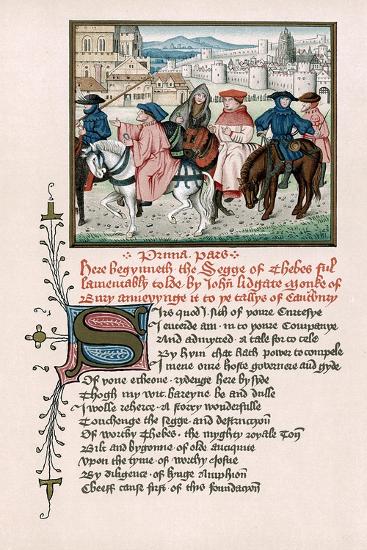 Prima Pars
Here begynneth the Segge of Thebes ful
lamentably tolde by John Lidgate Monke of
Bury annexynge it to ye tallys of Canterbury
Sirs quod I sith of youre Curtesye
I entrede am in to youre Companye
And admytted a tale for to tele
By hym that hath power to compele
I mene oure hoste governere and gyde
Of yone echeone rydenge here by side
Thogh my wit bareyne be and dulle
I wolle reherce a story wonderfulle
Touchenge the segge and destruccyon
Of worthy Thebes the myghty royale Ton
Bilt and bygonne of olde antiquite
Upon the tyme of worthy Josue
By diligence of kynge Amphion
Cheeff cause first of this foundacion